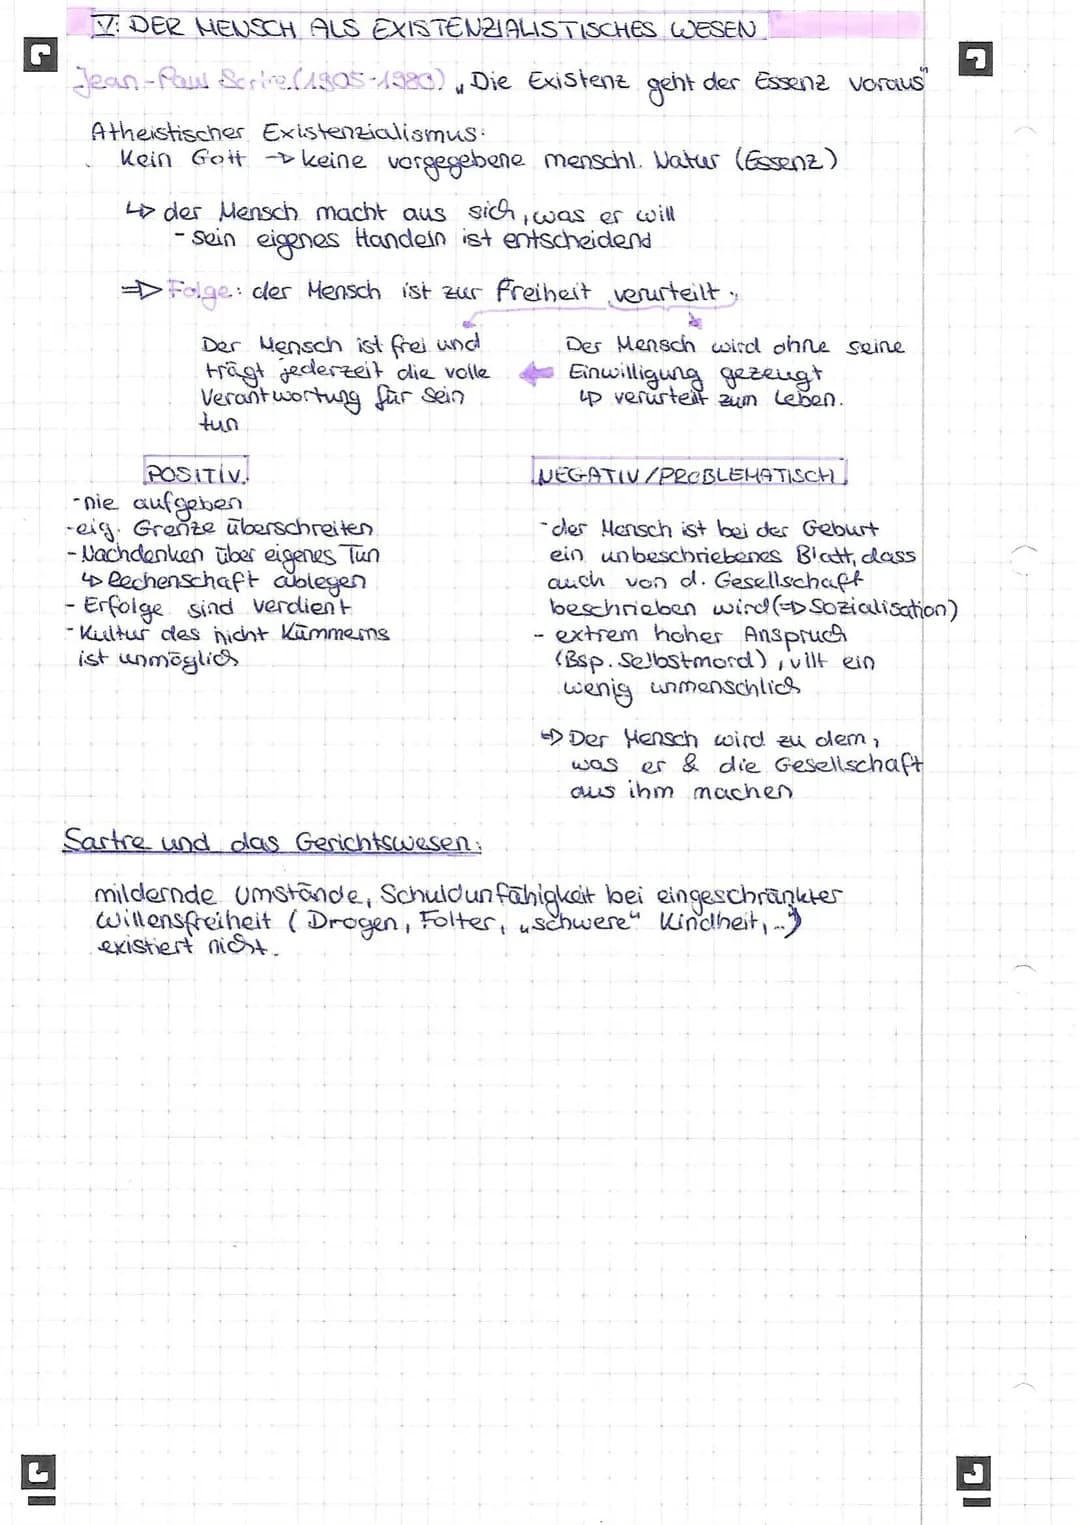 V. DER MENSCH ALS EXISTENZIALISTISCHES WESEN
Jean-Paul Sartre (1905-1980) „Die Existenz geht der Essenz voraus"
Atheistischer Existenzialismus:
Kein Gott → keine vorgegebene menschl. Natur (Essenz)
↳ der Mensch macht aus sich, was er will
- sein eigenes Handeln ist entscheidend
⇒ Folge: der Mensch ist zur Freiheit verurteilt.
Der Mensch ist frei und
trägt jederzeit die volle
Verantwortung für sein
tun
Der Mensch wird ohne seine
Einwilligung gezeugt
↳ verurteilt zum Leben.
POSITIV.
- nie aufgeben
- eig. Grenze überschreiten
- Nachdenken über eigenes Tun
↳ Rechenschaft ablegen
- Erfolge sind verdient
- Kultur des nicht Kümmerns
ist unmöglich
NEGATIV/PROBLEMATISCH
- der Mensch ist bei der Geburt
ein unbeschriebenes Blatt, dass
auch von d. Gesellschaft
beschrieben wird (⇒ Sozialisation)
- extrem hoher Anspruch
(Bsp. Selbstmord), vilt ein
wenig unmenschlich
⇒ Der Mensch wird zu dem,
was er & die Gesellschaft
aus ihm machen
Sartre und das Gerichtswesen:
mildernde Umstände, Schuldunfähigkeit bei eingeschränkter
Willensfreiheit (Drogen, Folter, „schwere" Kindheit, ...)
existiert nicht.